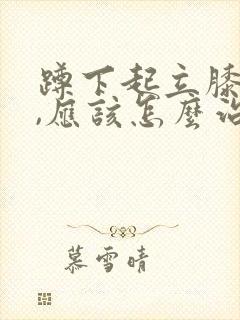 蹲下起立膝
,應該怎麼治
慕雪晴